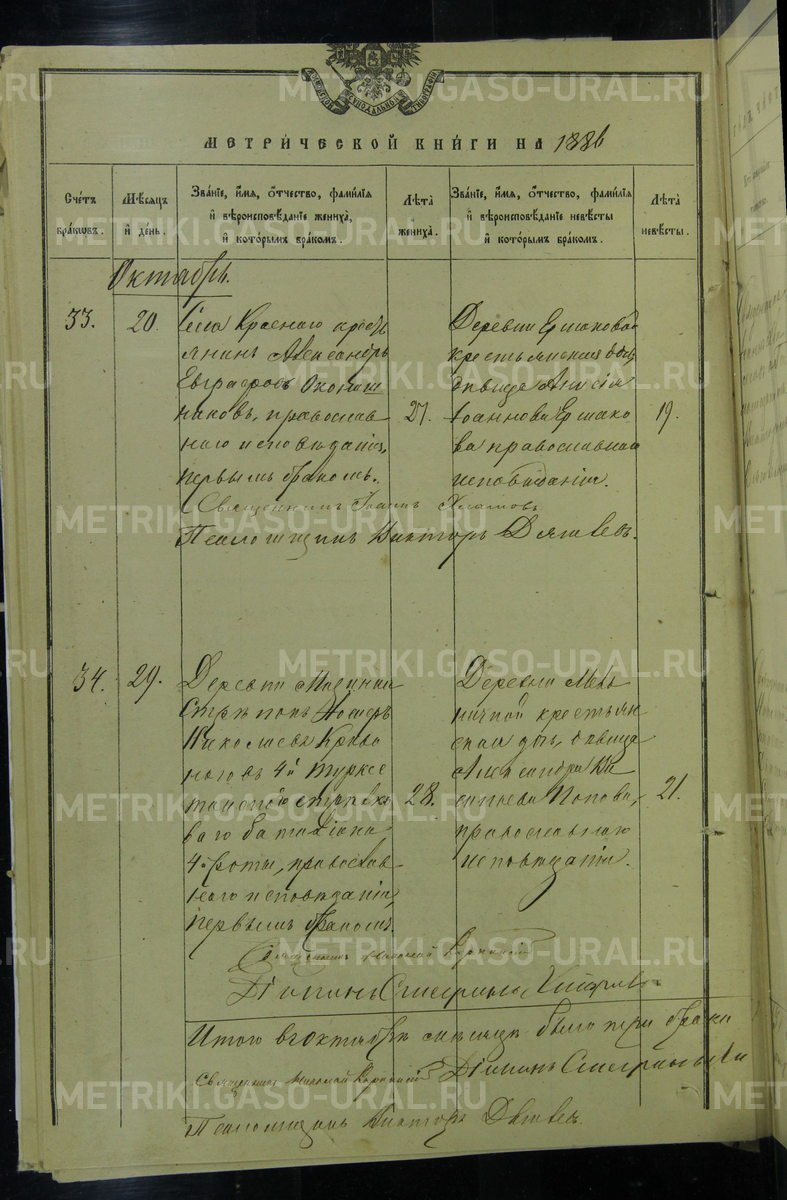 МОСКОВСКОЙ СУНОДАЛЬНОЙ ТИПОГРАФІИ
МЕТРИ́ЧЕСКОЙ КНИ́ГИ НА 1886
Сче́тъ бра́кѡвъ.
Мѣ́сяцъ и҆ де́нь.
Зва́нїе, и҆́мѧ, ѻ҆́тчество, фами́лїѧ и҆ вѣроисповѣ́данїе жениха̀, и҆ кото́рымъ бра́комъ.
Лѣ́та жениха̀.
Зва́нїе, и҆́мѧ, ѻ҆́тчество, фами́лїѧ и҆ вѣроисповѣ́данїе невѣ́сты и҆ кото́рымъ бра́комъ.
Лѣ́та невѣ́сты.
Октябрь.
33.
20.
Села Краснаго кресть
янинъ Александръ
Евграфовъ
никовъ, православ
наго исповѣданія,
первымъ бракомъ.
27.
Деревни Ермаковой
крестьянская дочь
дѣвица
Іоаннова Ермако
ва православнаго
исповѣданія.
19.
Священникъ Іоаннъ
Псаломщикъ Викторъ
34.
29.
Деревни
Стрѣлокъ
Николаевъ Криво
ноговъ 4й Туркес
танскаго стрѣлко
ваго баталіона
4й роты, православ
наго исповѣданія,
первымъ бракомъ.
28.
Деревни Мель
ничной крестьян
ская дочь, дѣвица
Александра Ва
сильева Попова,
православнаго
исповѣданія.
21.
Священникъ Николай
Діаконъ
Итого въ октябрѣ мѣсяцѣ было три брака
Священникъ Николай
Діаконъ
Псаломщикъ Викторъ
METRIKI.GASO-URAL.RU